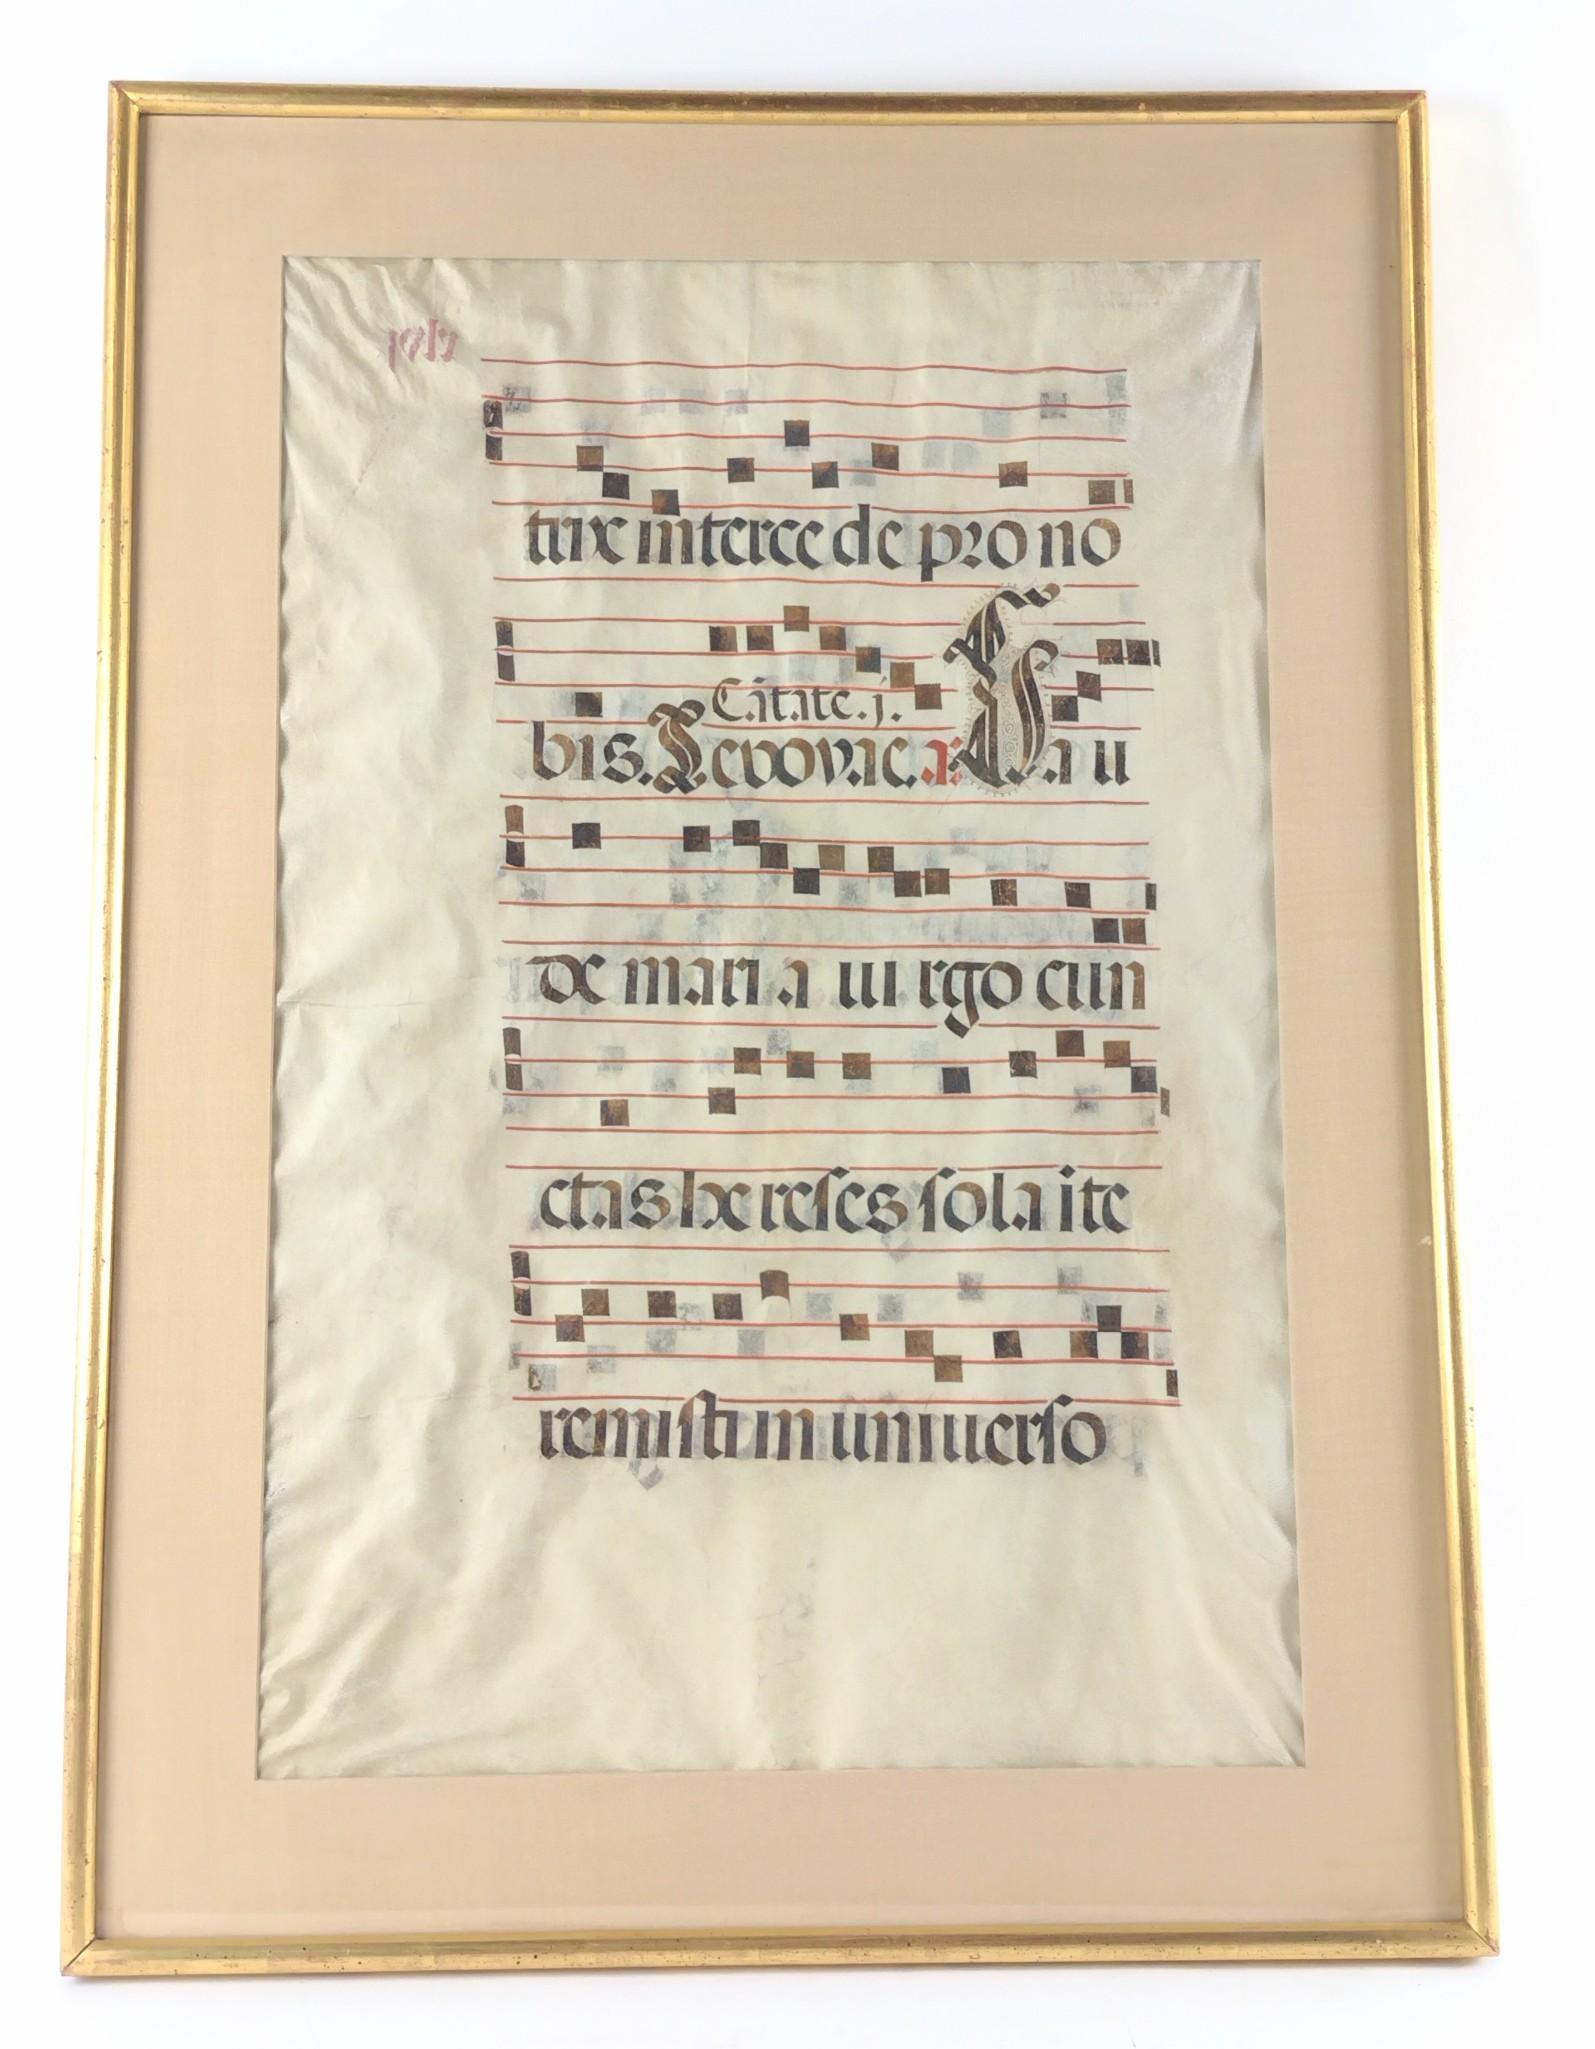 trix intercede pro no
Cãtate. j.
bis. Sevovae. a: Gau
de maria uirgo cun
ctas hereses sola ite
remisti in uniuerso